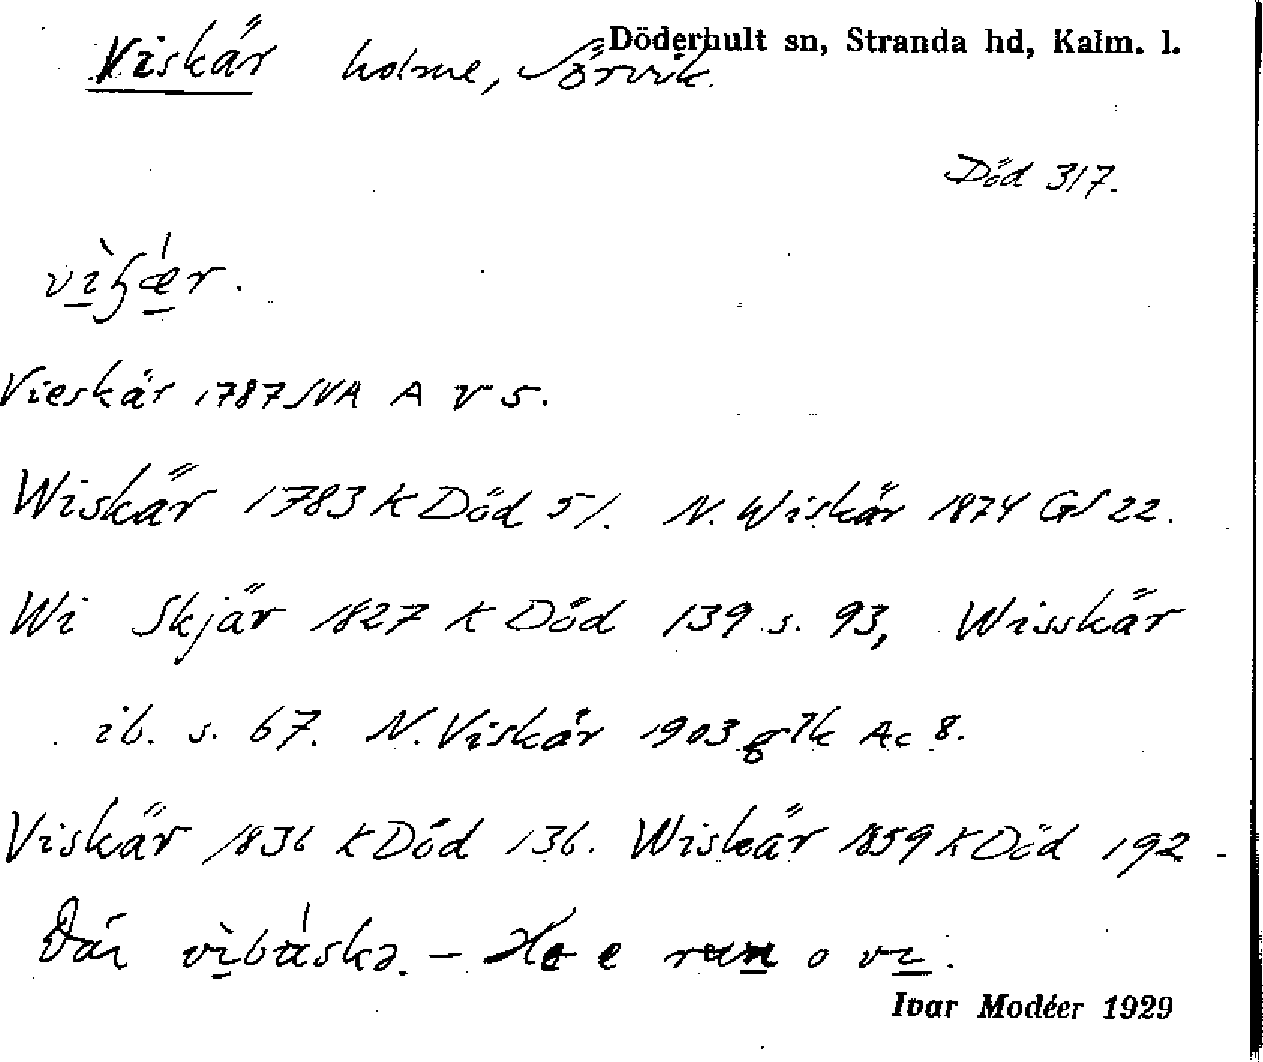 Döderhult sn, Stranda hd, Kalm. l.
Viskär holme, Sörvik.
Död 317.
Vieskär 1787 SVA A V 5.
Wiskär 1783 K Död 51. N. Wiskär 1874 GS 22.
Wi Skjär 1827 K Död 139 s. 93, Wisskär
ib. s. 67. N. Viskär 1903 glk Ac 8.
Viskär 1836 K Död 136. Wiskär 1859 K Död 192
vìbáskə. – e o vi.
Ivar Modéer 1929